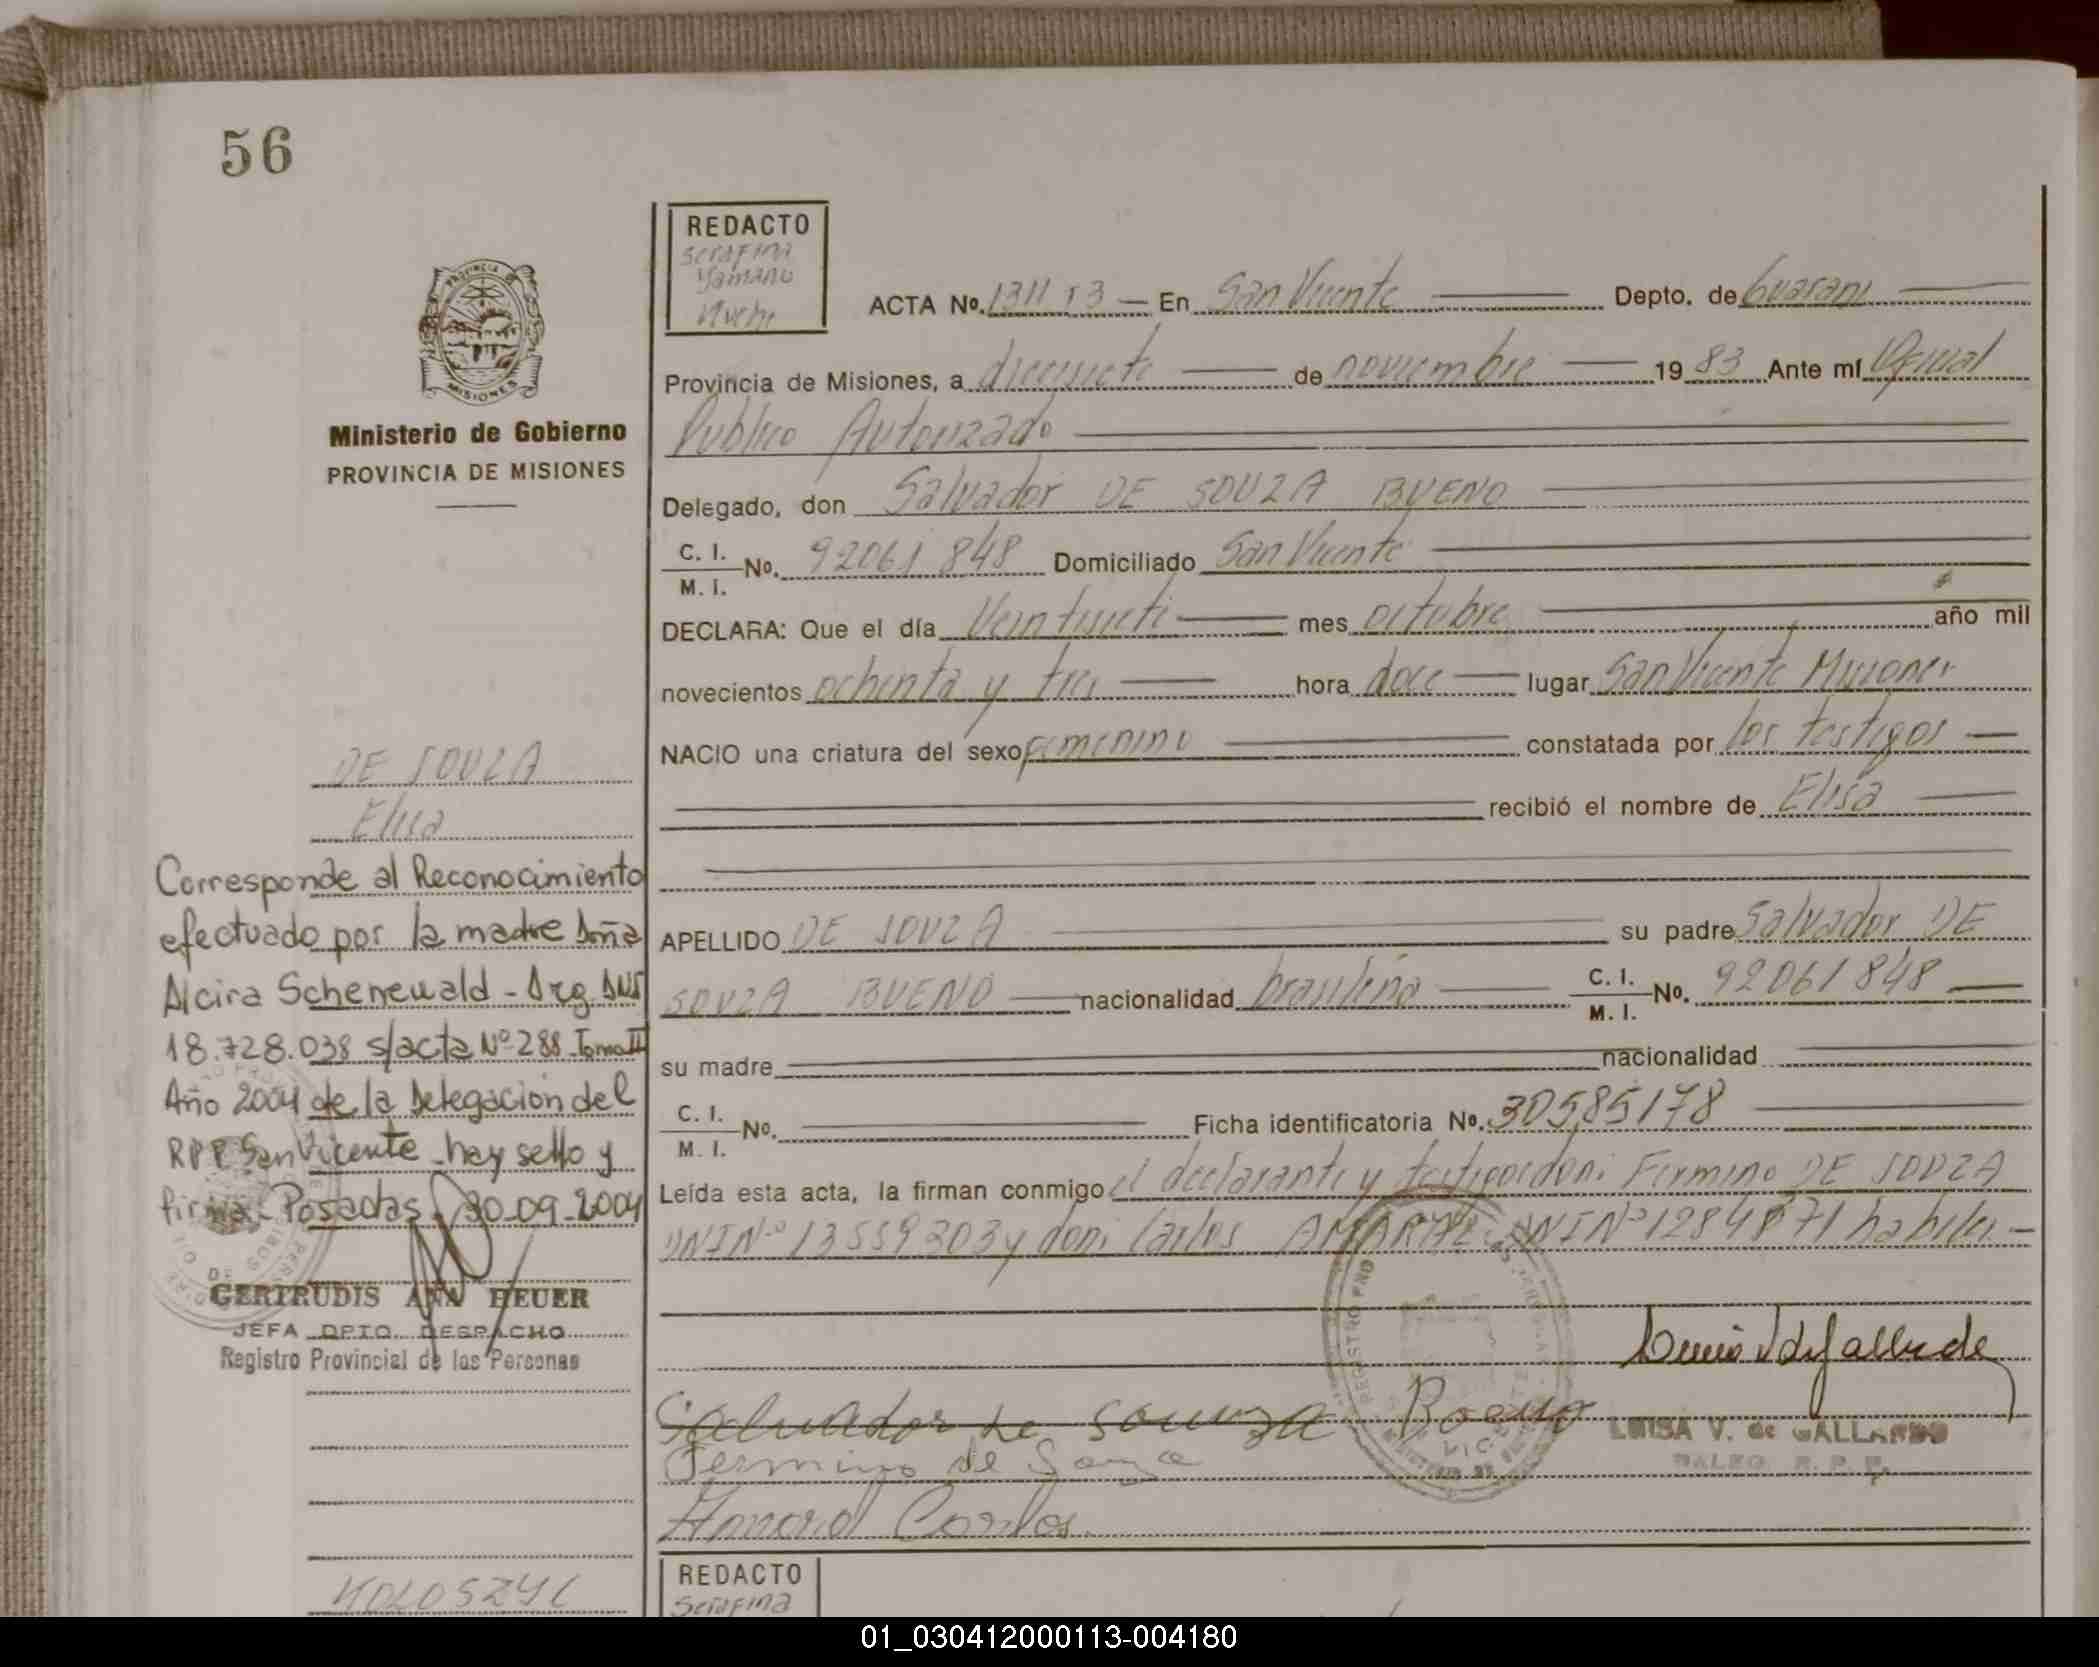 56
REDACTO
Serafina
Yamano
PROVINCIA DE
MISIONES
ACTA No. 1311 T3 — En San Vicente Depto. de Guarani
Provincia de Misiones, a diecisiete de noviembre 1983 Ante mí Oficial
Publico Autorizado
Ministerio de Gobierno
PROVINCIA DE MISIONES
Delegado, don Salvador DE SOUZA BUENO
C. I.
M. I. No. 92061848 Domiciliado San Vicente
DECLARA: Que el día Veintisiete mes octubre año mil
novecientos ochenta y tres hora doce lugar San Vicente Misiones
NACIO una criatura del sexo femenino constatada por los testigos
recibió el nombre de Elisa
APELLIDO DE SOUZA su padre Salvador DE
SOUZA BUENO nacionalidad brasileña C. I.
M. I. No. 92061848
su madre nacionalidad
C. I.
M. I. No. Ficha identificatoria No. 30585178
Leída esta acta, la firman conmigo el declarante y testigos don: Fermino DE SOUZA
DNI Nº 13559303 y don: Carlos AMARAL DNI Nº 1284871 habiles
DE SOUZA
Elisa
Corresponde al Reconocimiento
efectuado por la madre Doña
Alcira Schenewald - Arg. DNI
18.728.038 s/acta Nº 288 - Tomo II
Año 2004 de la Delegación del
RPP San Vicente - hay sello y
firma - Posadas, 30-09-2004
GERTRUDIS ANA HEUER
JEFA DPTO. DESPACHO
Registro Provincial de las Personas
Salvador de Souza Boeno
LUISA V. de GALLARDO
R. P. P.
Fermino de Souza
Amaral Carlos
REDACTO
Serafina
01_030412000113-004180